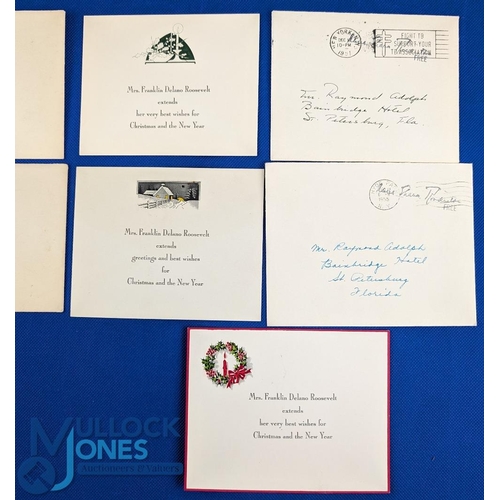 Mrs. Franklin Delano Roosevelt
extends
her very best wishes for
Christmas and the New Year
DEC
10-PM
1951
FIGHT TB
SUPPORT YOUR
TB ASSOCIATION
FREE
Raymond Adolph
Bainbridge Hotel
St. Petersburg, Fla.
Mrs. Franklin Delano Roosevelt
extends
greetings and best wishes
for
Christmas and the New Year
Mr. Raymond Adolph
Bainbridge Hotel
St. Petersburg
Florida
Mrs. Franklin Delano Roosevelt
extends
her very best wishes for
Christmas and the New Year
MULLOCK
JONES
Auctioneers & Valuers